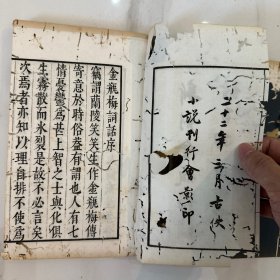 二十二年三月古佚
小說刊行會影印
金瓶梅詞話序
竊謂蘭陵笑笑生作金瓶梅傳
寄意於時俗蓋有謂也人有七
情憂鬱為甚上智之士與化俱
生霧散而冰裂是故不必言矣
次焉者亦知以理自排不使為